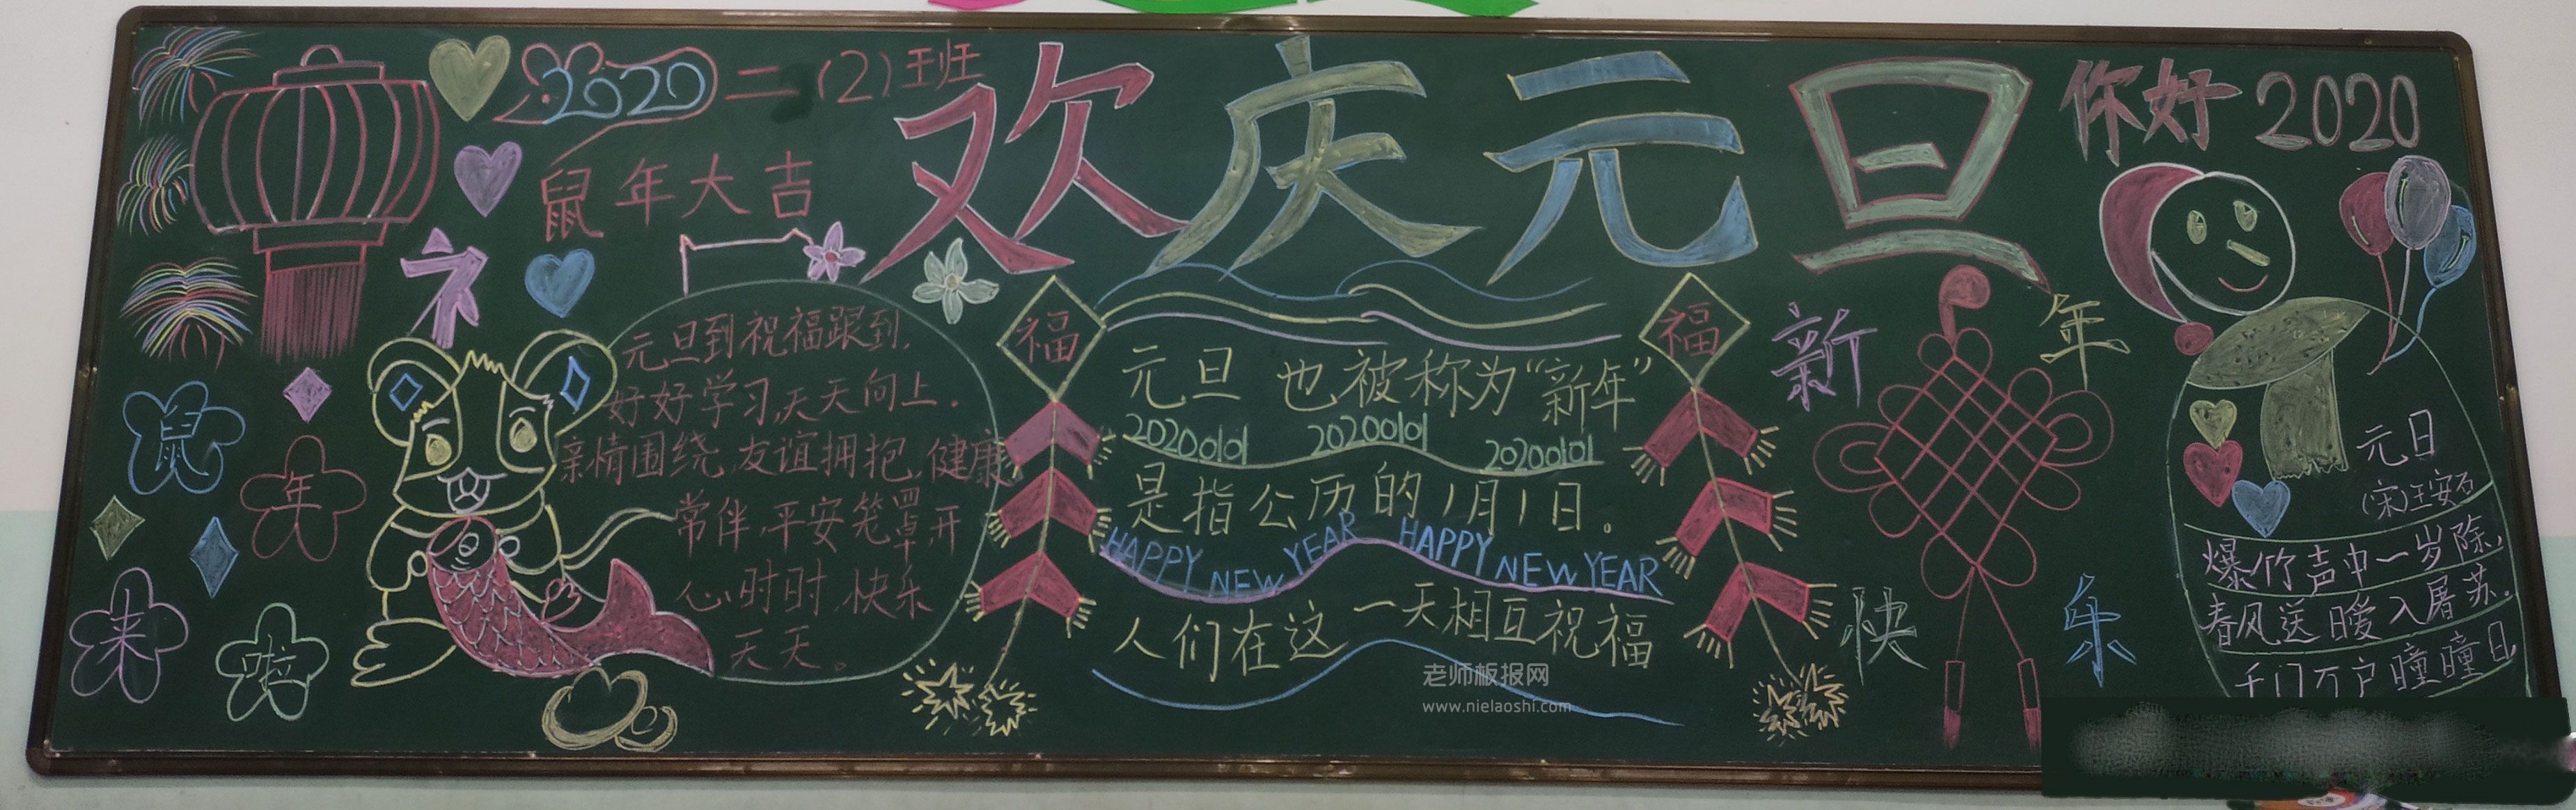 2020 二(2)班
鼠年大吉
欢庆元旦
你好 2020
鼠
年
来
啦
元旦到祝福跟到,
好好学习,天天向上.
亲情围绕,友谊拥抱,健康
常伴,平安笼罩,开
心时时,快乐
天天。
福
福
元旦 也被称为“新年”
20200101 20200101 20200101
是指公历的1月1日。
HAPPY NEW YEAR HAPPY NEW YEAR
人们在这一天相互祝福
新年
快乐
元日
(宋)王安石
爆竹声中一岁除,
春风送暖入屠苏.
千门万户曈曈日
老师板报网
www.nielaoshi.com